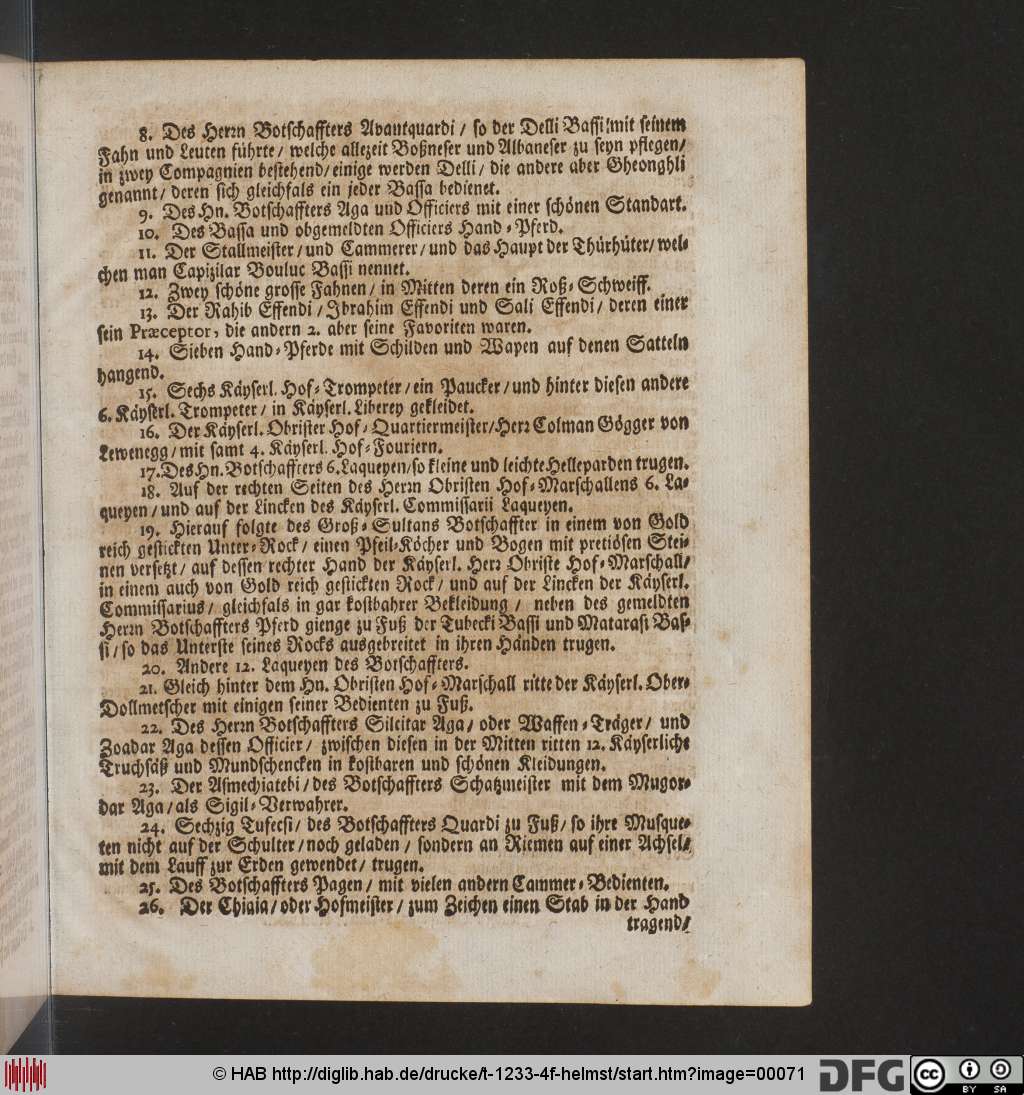 8. Des Herrn Botschaffters Avantquardi / so der Delli Bassi / mit seinem
Fahn und Leuten führte / welche allezeit Boßneser und Albaneser zu seyn pflegen /
in zwey Compagnien bestehend / einige werden Delli / die andere aber Gheonghli
genannt / deren sich gleichfals ein jeder Bassa bedienet.
9. Des Hn. Botschaffters Aga und Officiers mit einer schönen Standart.
10. Des Bassa und obgemeldten Officiers Hand-Pferd.
11. Der Stallmeister / und Cammerer / und das Haupt der Thürhüter / wel-
chen man Capizilar Bouluc Bassi nennet.
12. Zwey schöne grosse Fahnen / in Mitten deren ein Roß-Schweiff.
13. Der Rahib Effendi / Ibrahim Effendi und Sali Effendi / deren einer
sein Præceptor, die andern 2. aber seine Favoriten waren.
14. Sieben Hand-Pferde mit Schilden und Wapen auf denen Satteln
hangend.
15. Sechs Käyserl. Hof-Trompeter / ein Paucker / und hinter diesen andere
6. Käyserl. Trompeter / in Käyserl. Liberey gekleidet.
16. Der Käyserl. Obrister Hof-Quartiermeister / Herr Colman Gögger von
Lewenegg / mit samt 4. Käyserl. Hof-Fouriern.
17. Des Hn. Botschaffters 6. Laqueyen / so kleine und leichte Helleparden trugen.
18. Auf der rechten Seiten des Herrn Obristen Hof-Marschallens 6. La-
queyen / und auf der Lincken des Käyserl. Commissarii Laqueyen.
19. Hierauf folgte des Groß-Sultans Botschaffter in einem von Gold
reich gestickten Unter-Rock / einen Pfeil-Köcher und Bogen mit pretiösen Stei-
nen versetzt / auf dessen rechter Hand der Käyserl. Herr Obriste Hof-Marschall /
in einem auch von Gold reich gestickten Rock / und auf der Lincken der Käyserl.
Commissarius / gleichfals in gar kostbahrer Bekleidung / neben des gemeldten
Herrn Botschaffters Pferd gienge zu Fuß der Tubecki Bassi und Matarasi Bas-
si / so das Unterste seines Rocks ausgebreitet in ihren Händen trugen.
20. Andere 12. Laqueyen des Botschaffters.
21. Gleich hinter dem Hn. Obristen Hof-Marschall ritte der Käyserl. Ober-
Dollmetscher mit einigen seiner Bedienten zu Fuß.
22. Des Herrn Botschaffters Silcitar Aga / oder Waffen-Träger / und
Zoadar Aga dessen Officier / zwischen diesen in der Mitten ritten 12. Käyserliche
Truchsäß und Mundschencken in kostbaren und schönen Kleidungen.
23. Der Asmechiatebi / des Botschaffters Schatzmeister mit dem Mugor-
dar Aga / als Sigil-Verwahrer.
24. Sechzig Tufecsi / des Botschaffters Quardi zu Fuß / so ihre Musque-
ten nicht auf der Schulter / noch geladen / sondern an Riemen auf einer Achsel /
mit dem Lauff zur Erden gewendet / trugen.
25. Des Botschaffters Pagen / mit vielen andern Cammer-Bedienten.
26. Der Chiaia / oder Hofmeister / zum Zeichen einen Stab in der Hand
tragend /
© HAB http://diglib.hab.de/drucke/t-1233-4f-helmst/start.htm?image=00071
DFG
cc BY SA